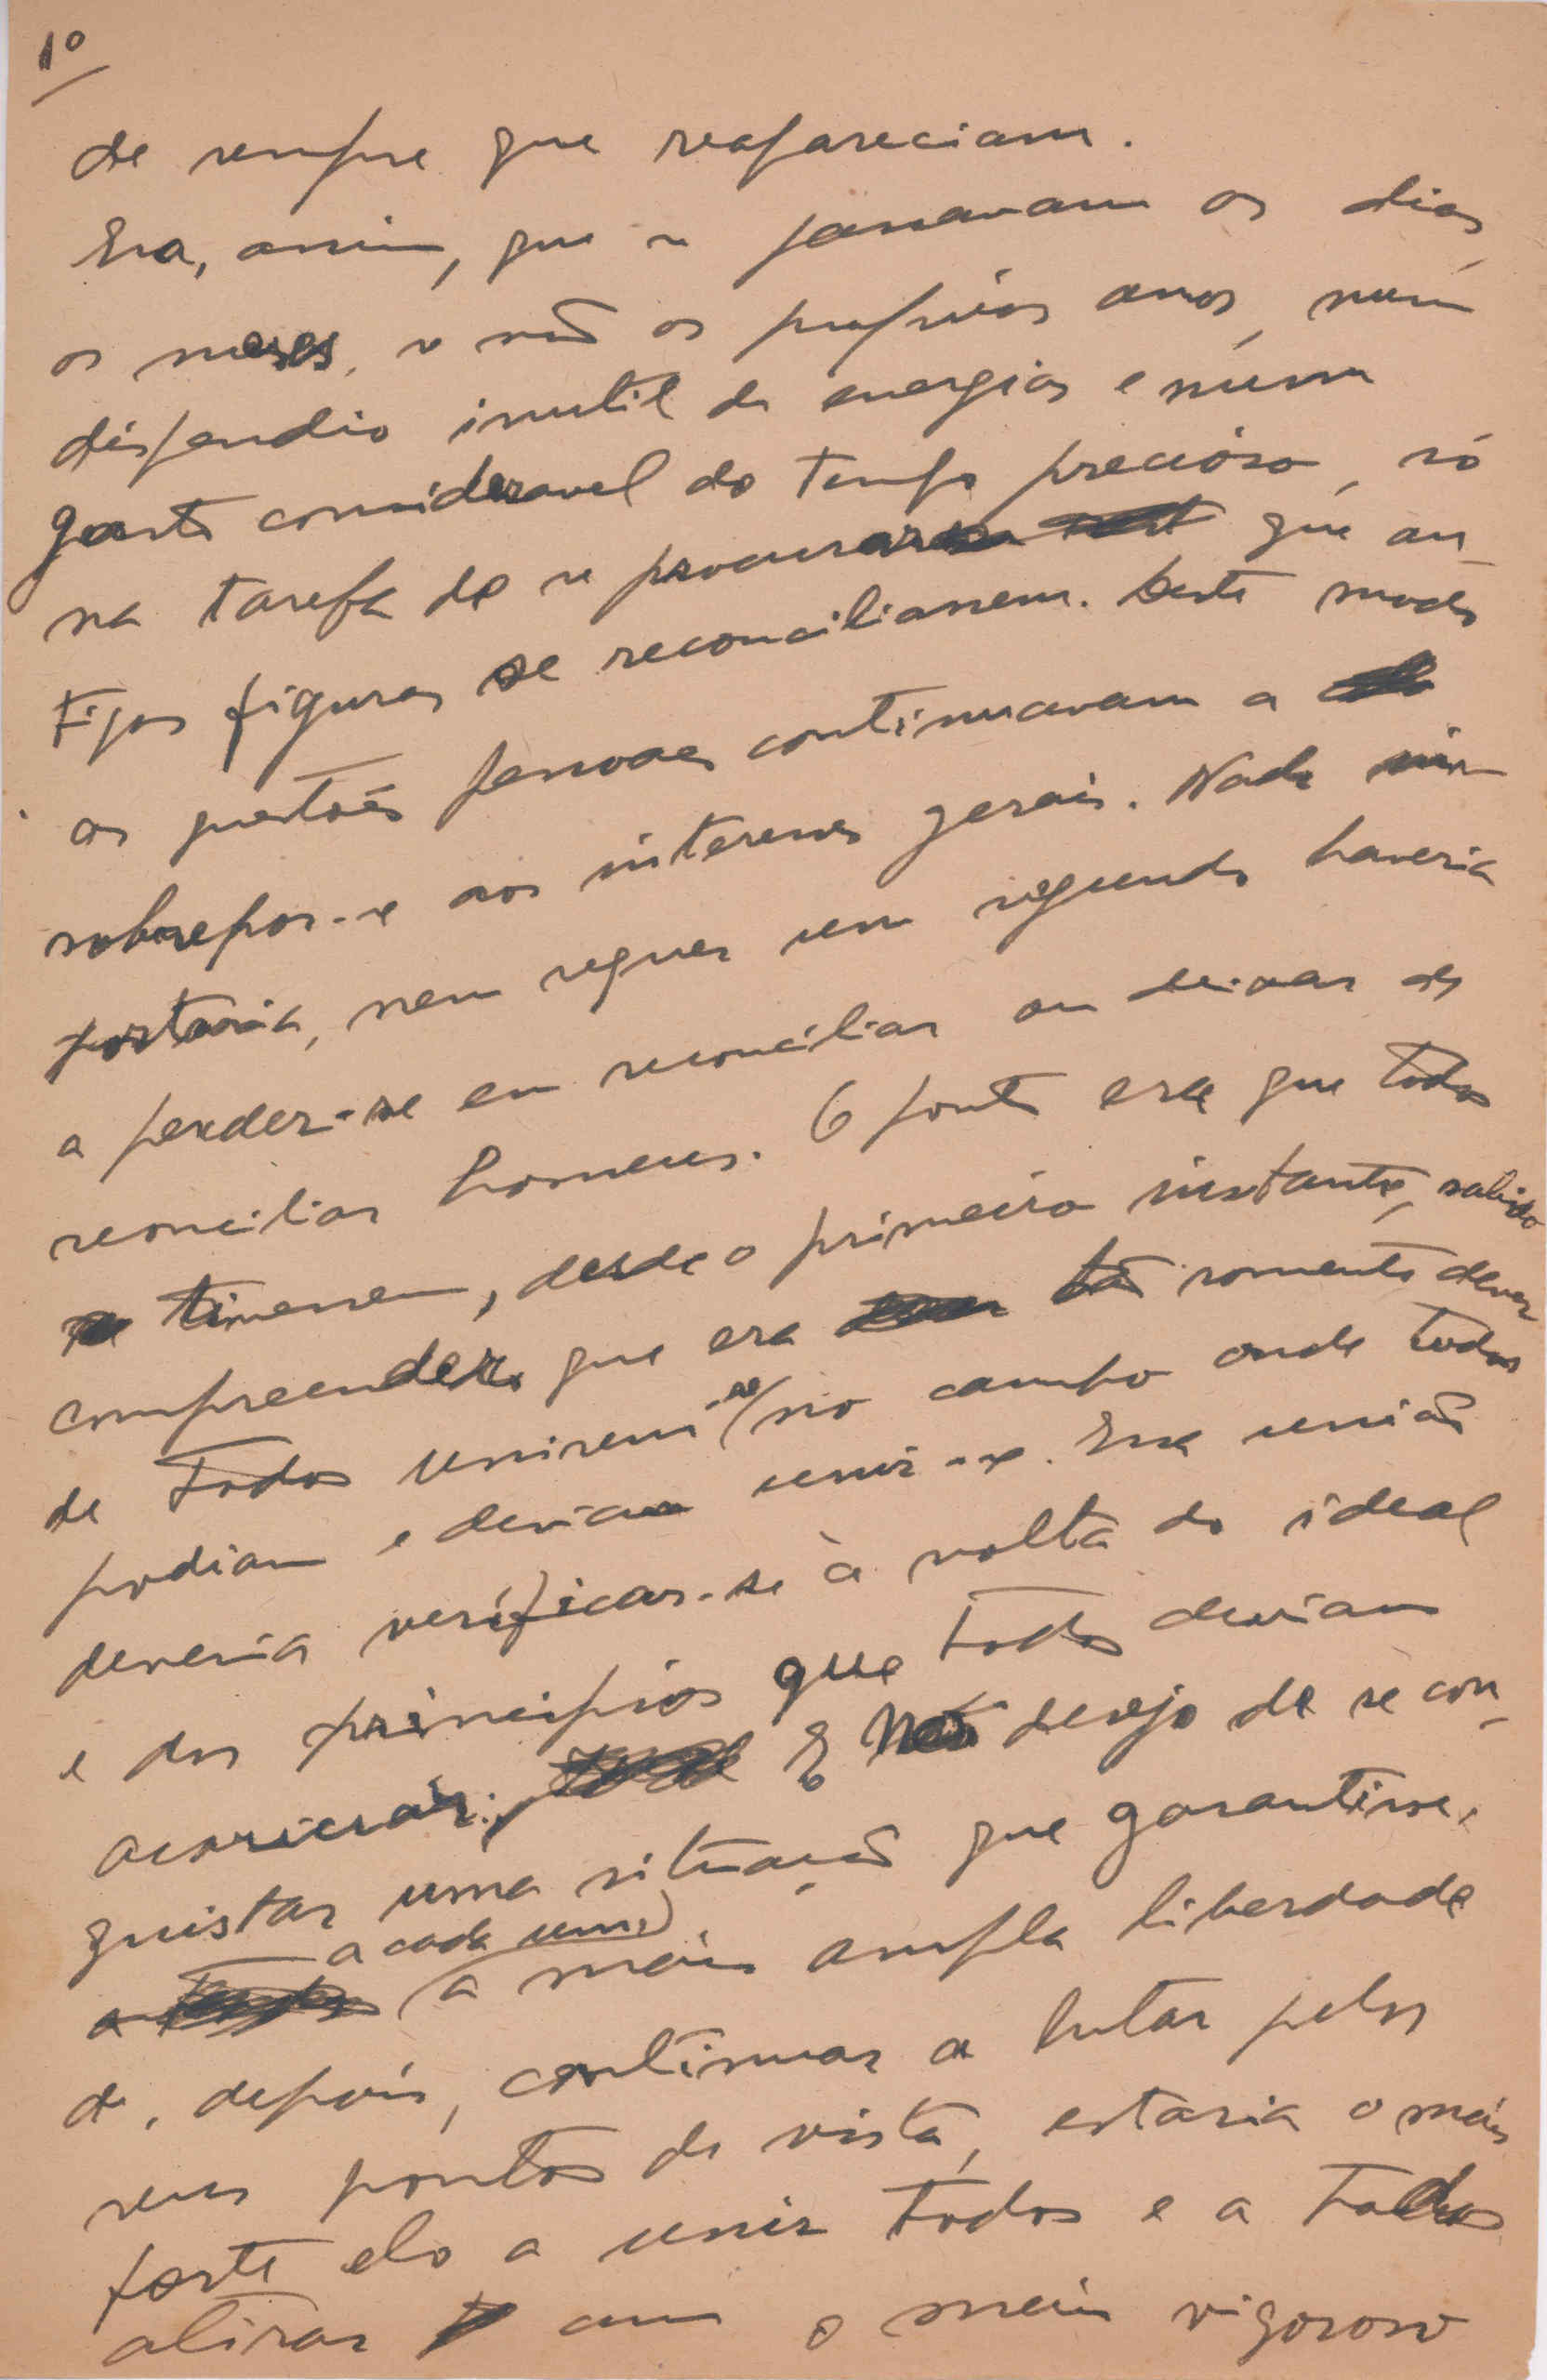 1º
de sempre que reapareciam.
Era, assim, que se passavam os dias,
os meses, se não os proprios anos, num
dispendio inutil de energias e num
gasto consideravel do tempo precioso, só
na tarefa de se procurar que an-
tigas figuras se reconciliassem. Deste modo
as questões pessoaes continuavam a
sobrepor-se aos interesses gerais. Nada im-
portaria, nem sequer um segundo haveria
a perder-se em reconciliar ou deixar de
reconciliar homens. O ponto era que todos
tivessem, desde o primeiro instante, sabido
compreender que era tão somente dever
de todos unirem-se no campo onde todos
podiam e deviam unir-se. Essa união
deveria verificar-se à volta do ideal
e dos principios que todos deviam
acariciar. E no desejo de se con-
quistar uma situação que garantisse,
a cada um, a mais ampla liberdade
de, depois, continuar a lutar pelos
seus pontos de vista, estaria o mais
forte elo a unir todos e a todos
atirar com o mais vigoroso